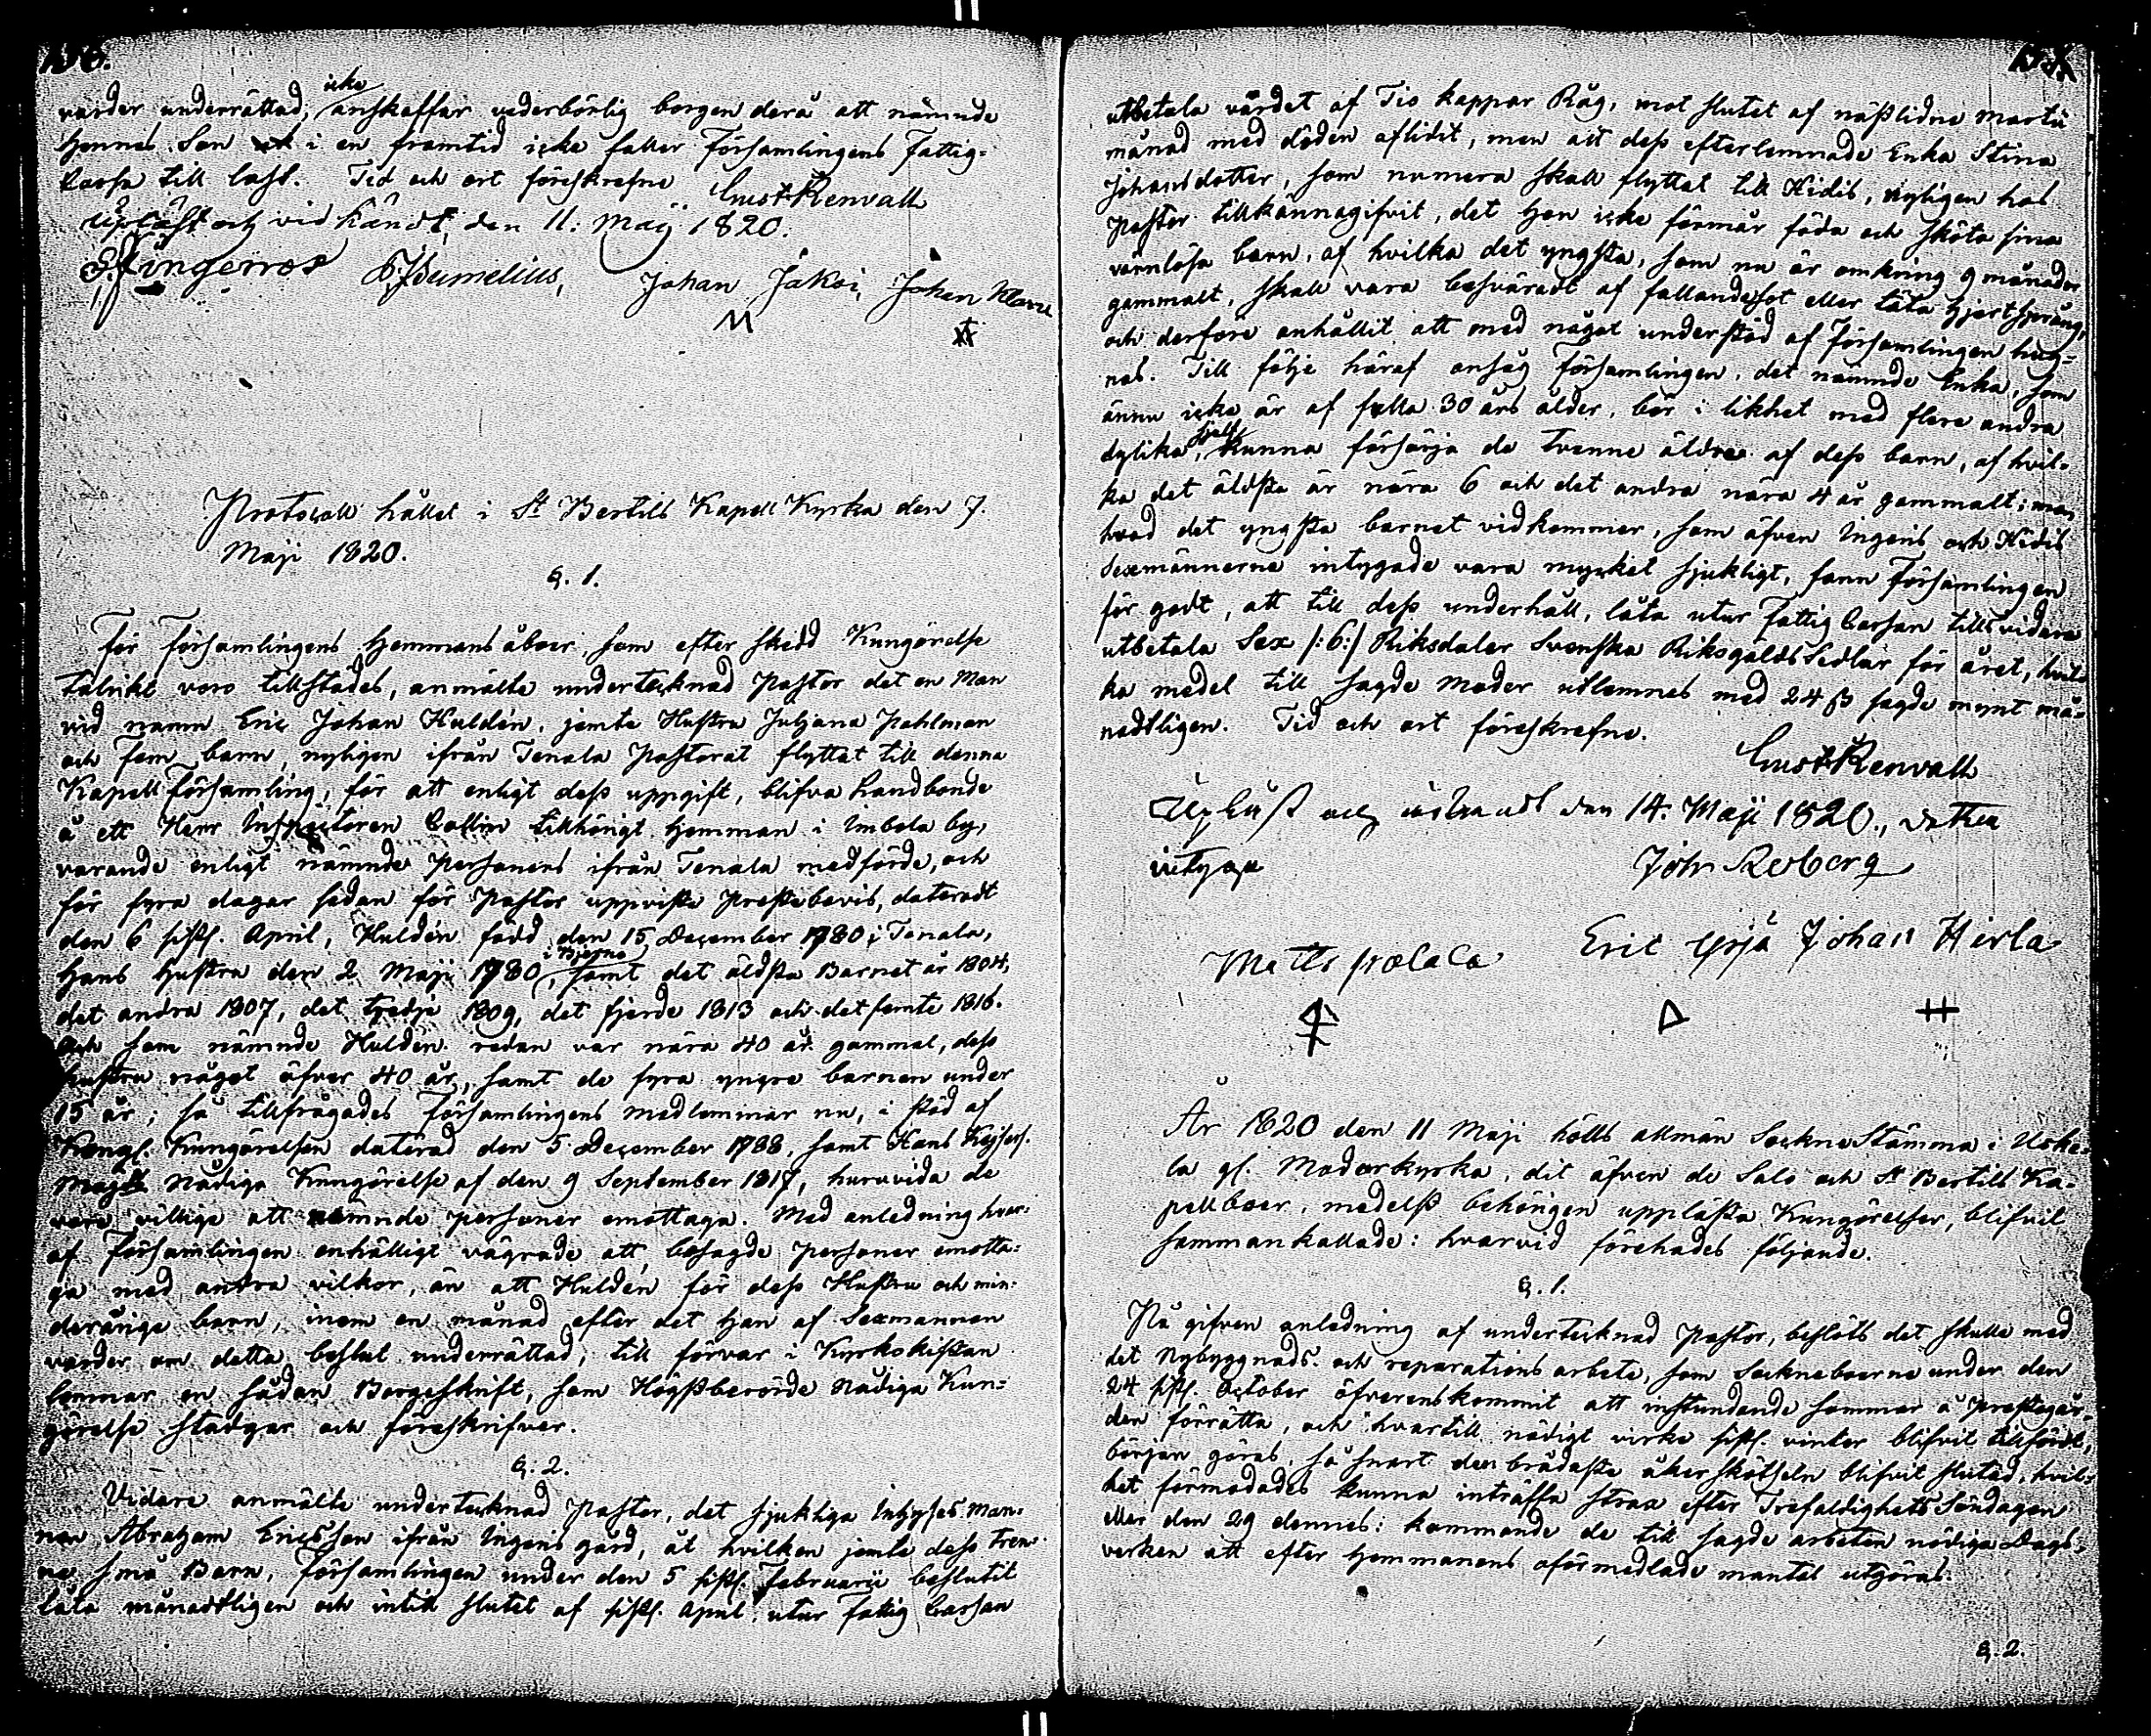 varder underrättad, icke anskaffar vederbörlig borgen derå att nämnde
Hennes Son i en framtid icke faller Församlingens Fattig-
Cassa till last. Tid och ort föreskrefne Gust Renvall
Upläst och vidkändt, den 11: Maij 1820.
Johan Jakoi, Johan Klave
Protocoll hållet i St Bertils Kapell Kyrka den 7.
Maji 1820.
§. 1.
För Församlingens Hemmans åboer, som efter skedd Kungörelse
talrikt voro tillstädes, anmälte undertecknad Pastor det en Man
vid namn Eric Johan Huldén, jemte Hustru Juljana Pahlman
och fem barn, nyligen ifrån Tenala Pastorat flyttat till denna
Kapell församling, för att enligt dess uppgift, blifva Landbonde
å ett Herr Inspectoren Collin tillhörigt Hemman i Imbola by,
varande enligt nämnde personens ifrån Tenala medförde, och
för fyra dagar sedan för Pastor uppviste Prestebevis, dateradt
den 6 sistl. April, Huldén född den 15 December 1780 i Tenala,
Hans Hustru den 2 Maji 1780 i Bjerno, samt det äldsta Barnet år 1804,
det andra 1807, det tredje 1809, det fjerde 1813 och det femte 1816.
Och som nämnde Huldén redan var nära 40 år gammal, dess
hustru något öfver 40 år, samt de fyra yngre barnen under
15 år; så tillfrågades Församlingens medlemmar nu, i stöd af
Kongl. Kungörelsen daterad den 5 December 1788, samt Hans Kejserl.
Majts Nådiga Kungörelse af den 9 September 1817, huruvida de
voro villige att nämnde personer emottaga. Med anledning hvar-
af Församlingen enhälligt vägrade att besagde personer emotta-
ga med andra vilkor, än att Huldén för dess Hustru och min-
derårige barn, inom en månad efter det Han af Sexmannen
varder om detta beslut underrättad, till förvar i Kyrkokistan
lemnar en sådan Borgeskrift, som Högstberörde Nådiga Kun-
görelse stadgar och föreskrifver.
§. 2.
Vidare anmälte undertecknad Pastor, det sjukliga Inhyses Man-
nen Abraham Ericsson ifrån Ingeris gård, åt hvilken jemte dess tren-
ne små Barn, Församlingen under den 5 sistl. Februarii beslutit
låta månadtligen och intill slutet af sistl. April, utur Fattig Cassan
utbetala värdet af Tio kappar Råg, mot slutet af nästlidne Martii
månad med döden aflidit, men att dess efterlemnade Enka Stina
Johansdotter, som numera skall flyttat till Hidis, nyligen hos
Pastor tillkännagifvit, det Hon icke förmår föda och sköta sina
värnlösa barn, af hvilka det yngsta, som nu är omkring 9 månader
gammalt, skall vara besväradt af fallandesot eller täta Hjertsprång,
och derföre anhållit att med något understöd af Församlingen hug-
nas. Till följe häraf ansåg Församlingen, det nämnde Enka, som
ännu icke är af fulla 30 års ålder, bör i likhet med flere andra
dylika, sjelf kunna försörja de tvenne äldre af dess barn, af hvil-
ka det äldsta är nära 6 och det andra nära 4 år gammalt; men
hvad det yngsta barnet vidkommer, som äfven Ingeris och Hidis
Sexmännerne intygade vara mycket sjukligt, fann Församlingen
för godt, att till dess underhåll, låta utur Fattig Cassan tillsvidare
utbetala Sex /:6:/ Riksdaler Svenska Riksgälds Sedlar för året, hvil-
ka medel till sagde Moder utlemnes med 24 ß sagde mynt må-
nadtligen. Tid och ort föreskrefne.
Gust Renvall
Uplüst och vidkändt den 14. Maji 1820., detta
intyga Joh Reberg
Eric Yrjä Johan Hirla
År 1820 den 11 Maji hölls allmän Sockne Stämma i Uske-
la gl. Moderkyrka, dit äfven de Salo och St Bertils Ka-
pellboer, medelst behörigen upplästa Kungörelser, blifvit
sammankallade: hvarvid förehades följande.
§. 1.
På gifven anledning af undertecknad Pastor, beslöts det skulle med
det Nybyggnads- och reparations arbete, som Sockneboerne under den
24 sistl. October öfverenskommit att instundande sommar å Prestegår-
den förrätta, och hvartill nödigt virke sistl. vinter blifvit tillfördt,
början göras, så snart den brådaste åkerskötseln blifvit slutad, hvil-
ket förmodades kunna inträffa strax efter Trefaldighets Söndagen
eller den 29 dennes: kommande de till sagde arbeten nödiga Dags-
verken att efter Hemmanens oförmedlade mantal utgöras.
§. 2.